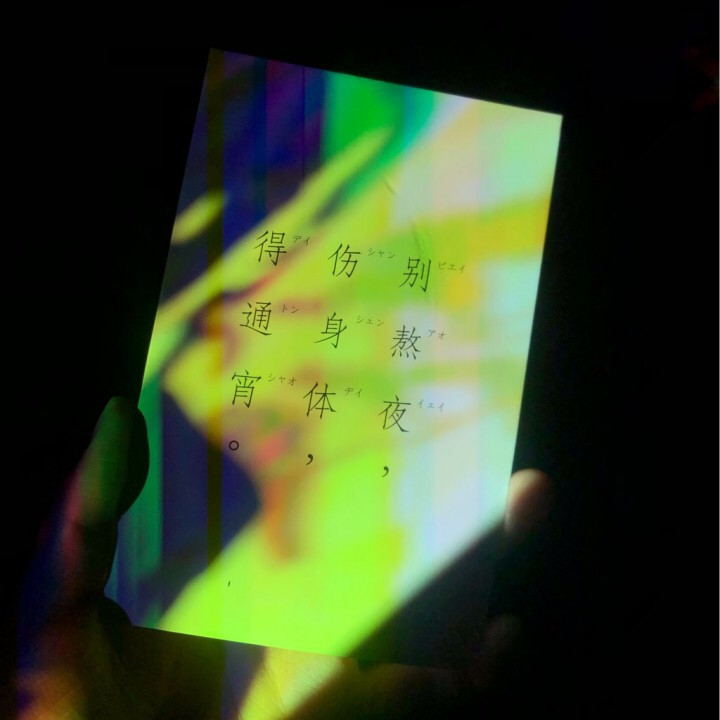 别熬夜，
ビエイ アオ イエイ
伤身体，
シャン シェン デイ
得通宵。
デイ トン シャオ